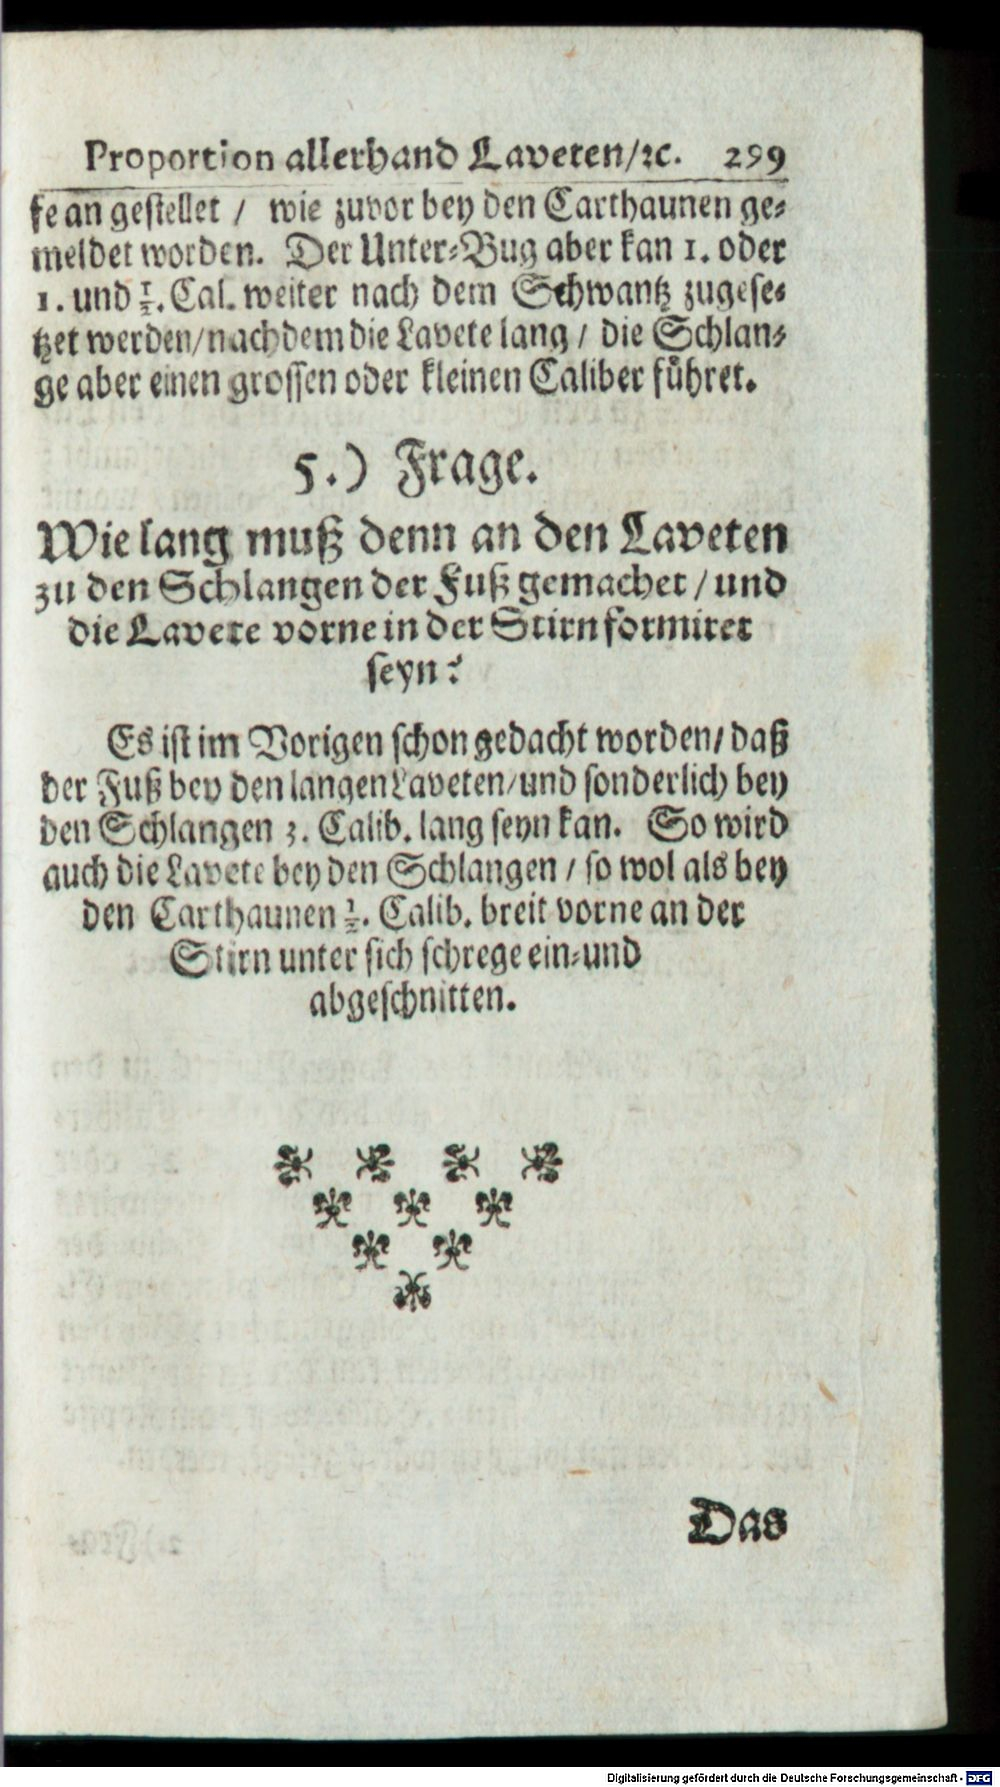 Proportion allerhand Laveten/ꝛc. 299
fe angestellet / wie zuvor bey den Carthaunen ge-
meldet worden. Der Unter-Bug aber kan 1. oder
1. und 1/2. Cal. weiter nach dem Schwantz zugese-
tzet werden/nachdem die Lavete lang / die Schlan-
ge aber einen grossen oder kleinen Caliber führet.
5.) Frage.
Wie lang muß denn an den Laveten
zu den Schlangen der Fuß gemachet / und
die Lavete vorne in der Stirn formiret
seyn?
Es ist im Vorigen schon gedacht worden/ daß
der Fuß bey den langen Laveten/und sonderlich bey
den Schlangen 3. Calib. lang seyn kan. So wird
auch die Lavete bey den Schlangen / so wol als bey
den Carthaunen 1/2. Calib. breit vorne an der
Stirn unter sich schrege ein-und
abgeschnitten.
Das
Digitalisierung gefördert durch die Deutsche Forschungsgemeinschaft - DFG